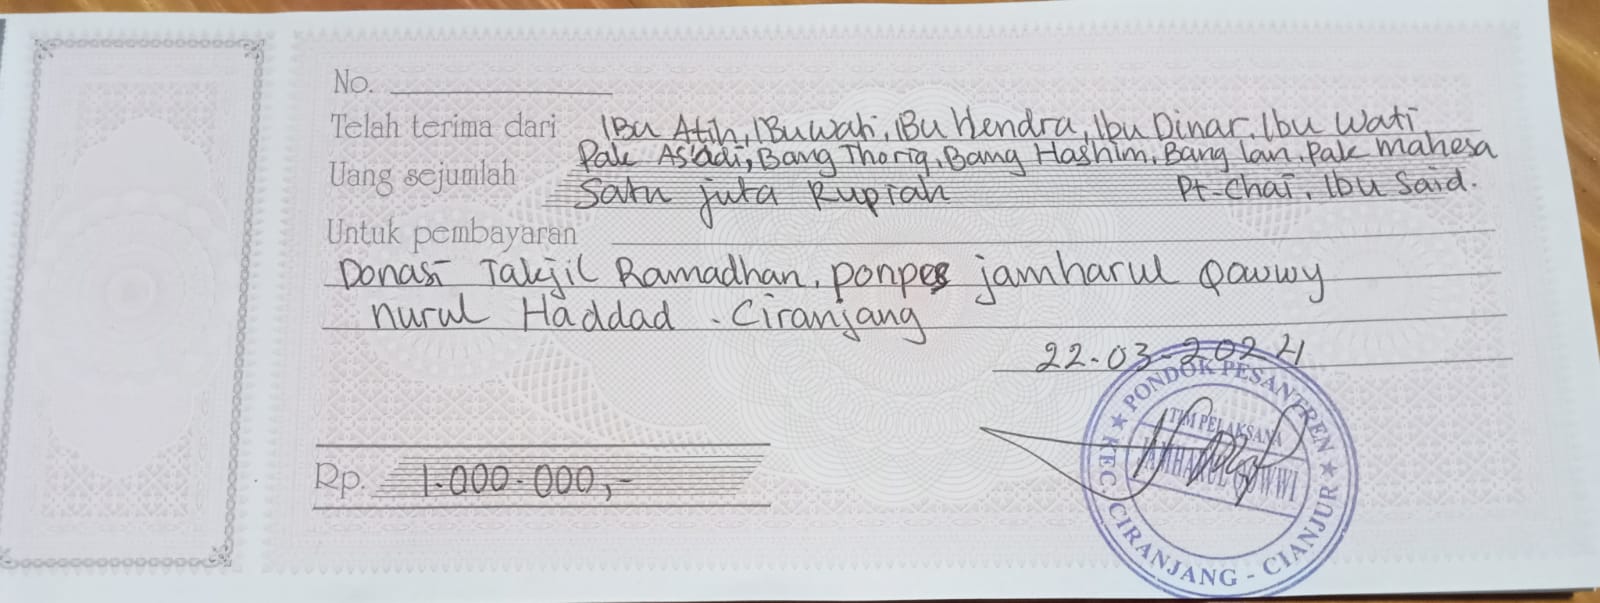 No.
Telah terima dari IBu Atih, IBu Wati, IBu Hendra, Ibu Dinar, Ibu Wati
Pak As'adi, Bang Thoriq, Bang Hashim, Bang Ian, Pak Mahesa
Uang sejumlah Satu juta Rupiah Pt-Chai, Ibu Said.
Untuk pembayaran
Donasi Takjil Ramadhan, ponpes jamharul Qowwy
nurul Haddad - Ciranjang
22-03-2024
Rp. 1.000.000,-
PONDOK PESANTREN
TIM PELAKSANA
JAMHARUL QOWWI
KEC CIRANJANG - CIANJUR